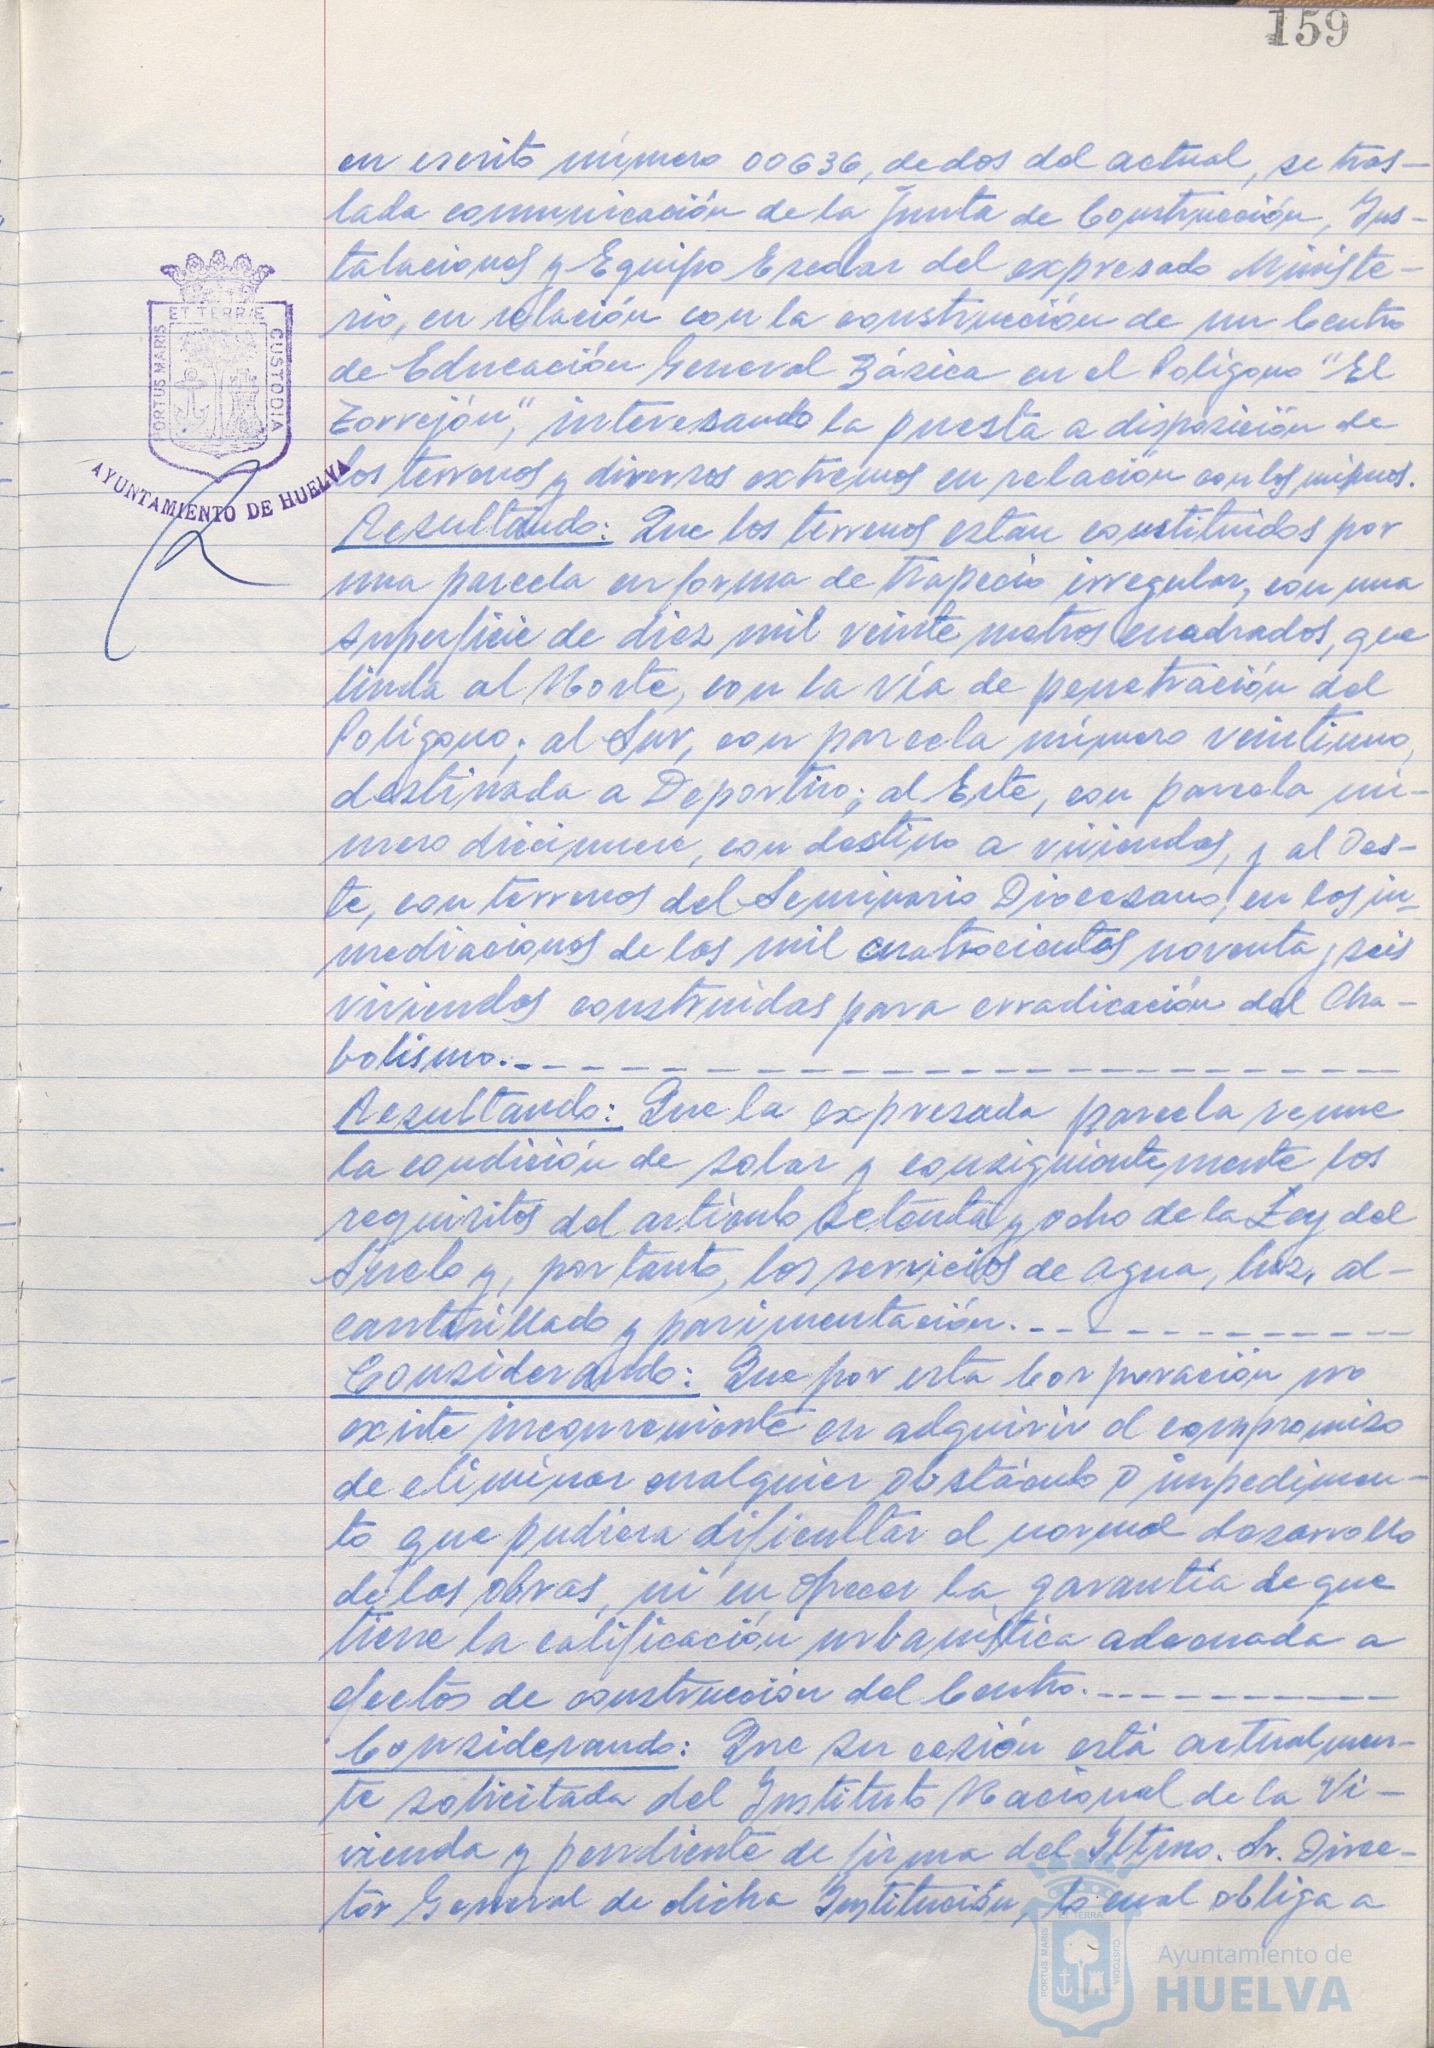 159
en escrito número 00636, de dos del actual, se tras-
lada comunicación de la Junta de Construcción, Ins-
talaciones y Equipo Escolar del expresado Ministe-
rio, en relación con la construcción de un Centro
de Educación General Básica en el Polígono "El
Torrejón", interesando la puesta a disposición de
los terrenos y diversos extremos en relación con los mismos.
Resultando: Que los terrenos están constituidos por
una parcela en forma de trapecio irregular, con una
superficie de diez mil veinte metros cuadrados, que
linda al Norte, con la vía de penetración del
Polígono; al Sur, con parcela número veintiuno,
destinada a Deportivo; al Este, con parcela nú-
mero diecinueve, con destino a viviendas, y al Oes-
te, con terrenos del Seminario Diocesano, en los in-
mediaciones de las mil cuatrocientas noventa y seis
viviendas construidas para erradicación del Cha-
bolismo.
Resultando: Que la expresada parcela reune
la condición de solar y consiguientemente los
requisitos del artículo setenta y ocho de la Ley del
Suelo y, por tanto, los servicios de agua, luz, al-
cantarillado y pavimentación.
Considerando: Que por esta Corporación no
existe inconveniente en adquirir el compromiso
de eliminar cualquier obstáculo o impedimen-
to que pudiera dificultar el normal desarrollo
de las obras, ni en ofrecer la garantía de que
tiene la calificación urbanística adecuada a
efectos de construcción del Centro.
Considerando: Que su cesión está actualmen-
te solicitada del Instituto Nacional de la Vi-
vienda y pendiente de firma del Iltmo. Sr. Direc-
tor General de dicha Institución, lo cual obliga a
PORTUS MARIS ET TERRAE CUSTODIA
AYUNTAMIENTO DE HUELVA
PORTUS MARIS ET TERRAE CUSTODIA
Ayuntamiento de
HUELVA